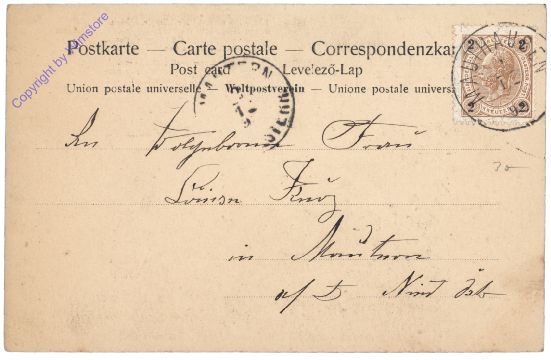 Copyright by Pimstore
Postkarte — Carte postale — Correspondenzka
Post card Levelező-Lap
Union postale universelle — Weltpostverein — Unione postale univers
MAUTERN
MAUTHAUSEN
2 2
2 2
An Frau
in Mautern
a/D Nied Östr